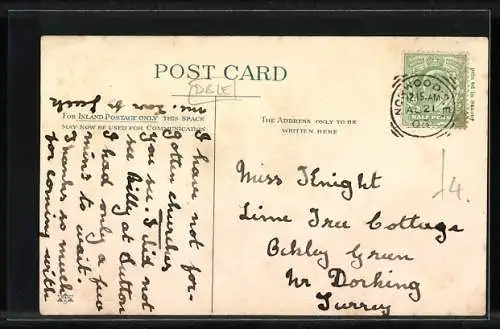 POST CARD
DBLE
For Inland Postage only this space
may now be used for Communication
The Address only to be
written here
I have not for-
gotten churches
You see I did not
see Billy at Sutton
I had only a few
mins to wait.
Thanks so much
for coming with
me.
NORWOOD
12.15 AM
AU 21
HALF PENNY
Miss Knight
Lime Tree Cottage
Ockley Green
Nr Dorking
Surrey
4.